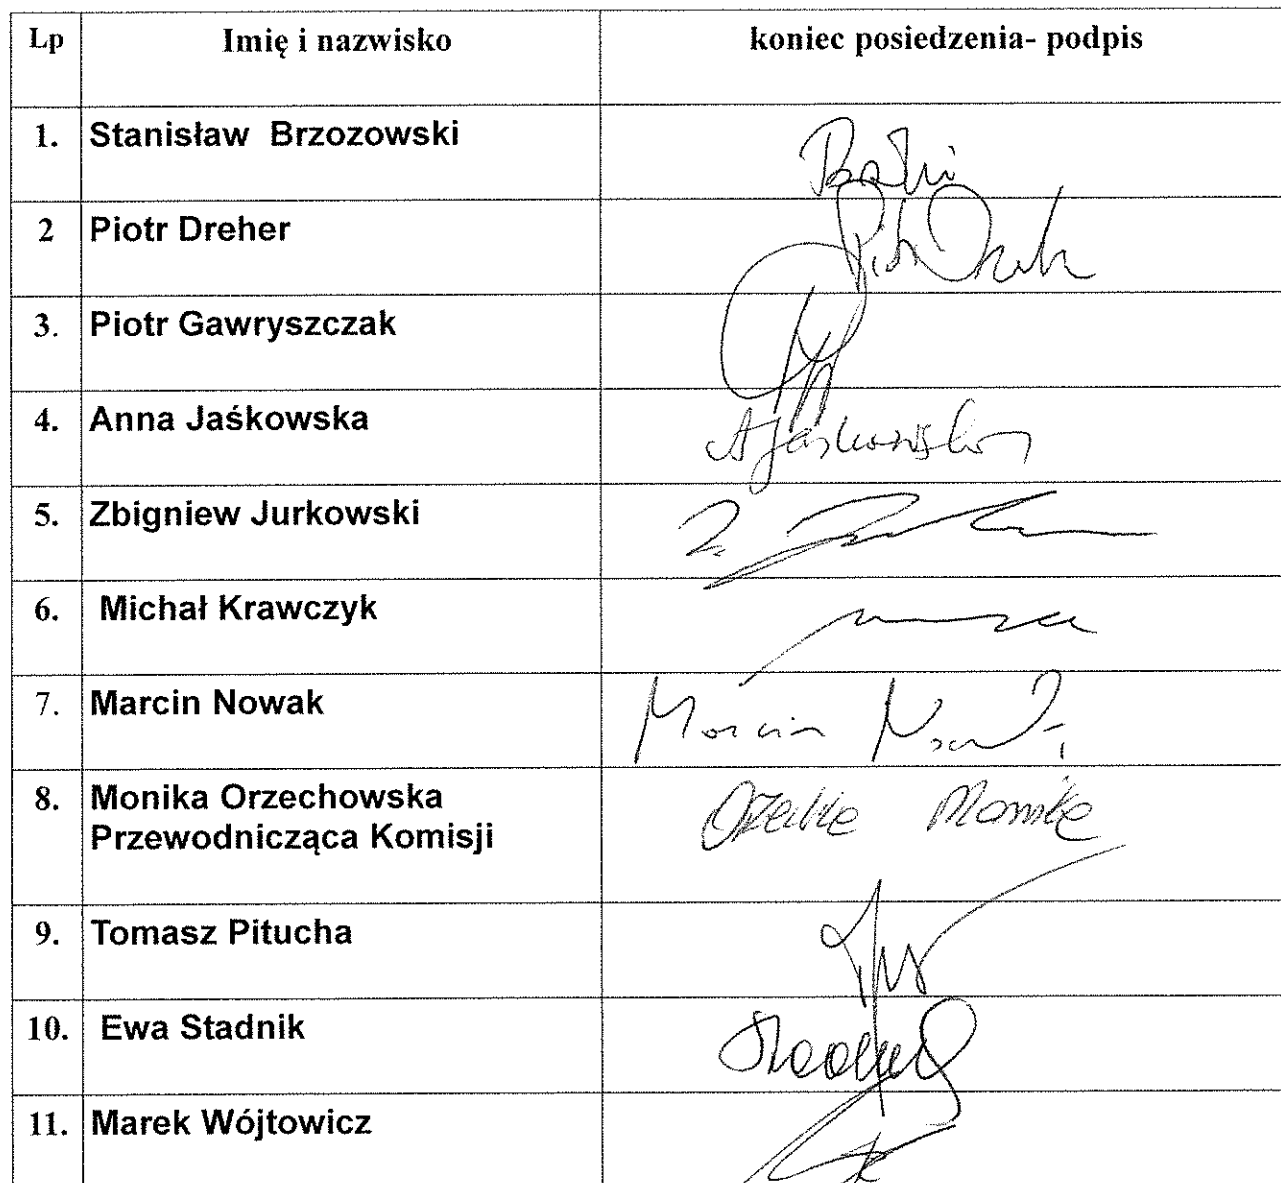 Lp Imię i nazwisko koniec posiedzenia- podpis
1. Stanisław Brzozowski
2 Piotr Dreher
3. Piotr Gawryszczak
4. Anna Jaśkowska AJaśkowska
5. Zbigniew Jurkowski
6. Michał Krawczyk
7. Marcin Nowak Marcin Nowak
8. Monika Orzechowska
Przewodnicząca Komisji
9. Tomasz Pitucha
10. Ewa Stadnik
11. Marek Wójtowicz